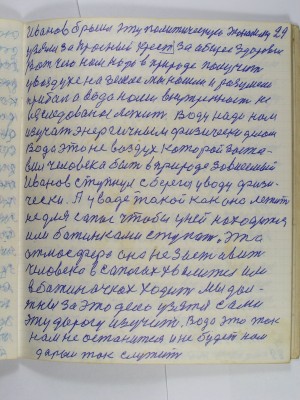 Иванов бросил эту политическую экономику 29
узнал за прошлый идет За общее Здоровье
Вот что нам надо в природе получить
у воздухе на
рыбал а вода нами внутренность не
исследована лежит Воду надо нам
изучат энергичным физическим делом
Вода это не воздух которой заста-
вил человека быть в природе Зависимый
Иванов ступнул с берега у воду физи-
чески. А у воде такой как она лежит
не для сапог чтобы у ней находится
или ботинками ступат, эта
атмосфера она не Заставит
человека в сапогах хвалится или
в ботиночках ходит Мы дол-
жны За это дело узятся Сами
эту дорогу изучит. Вода это ток
нам не останится и не будет нам
даром ток служит